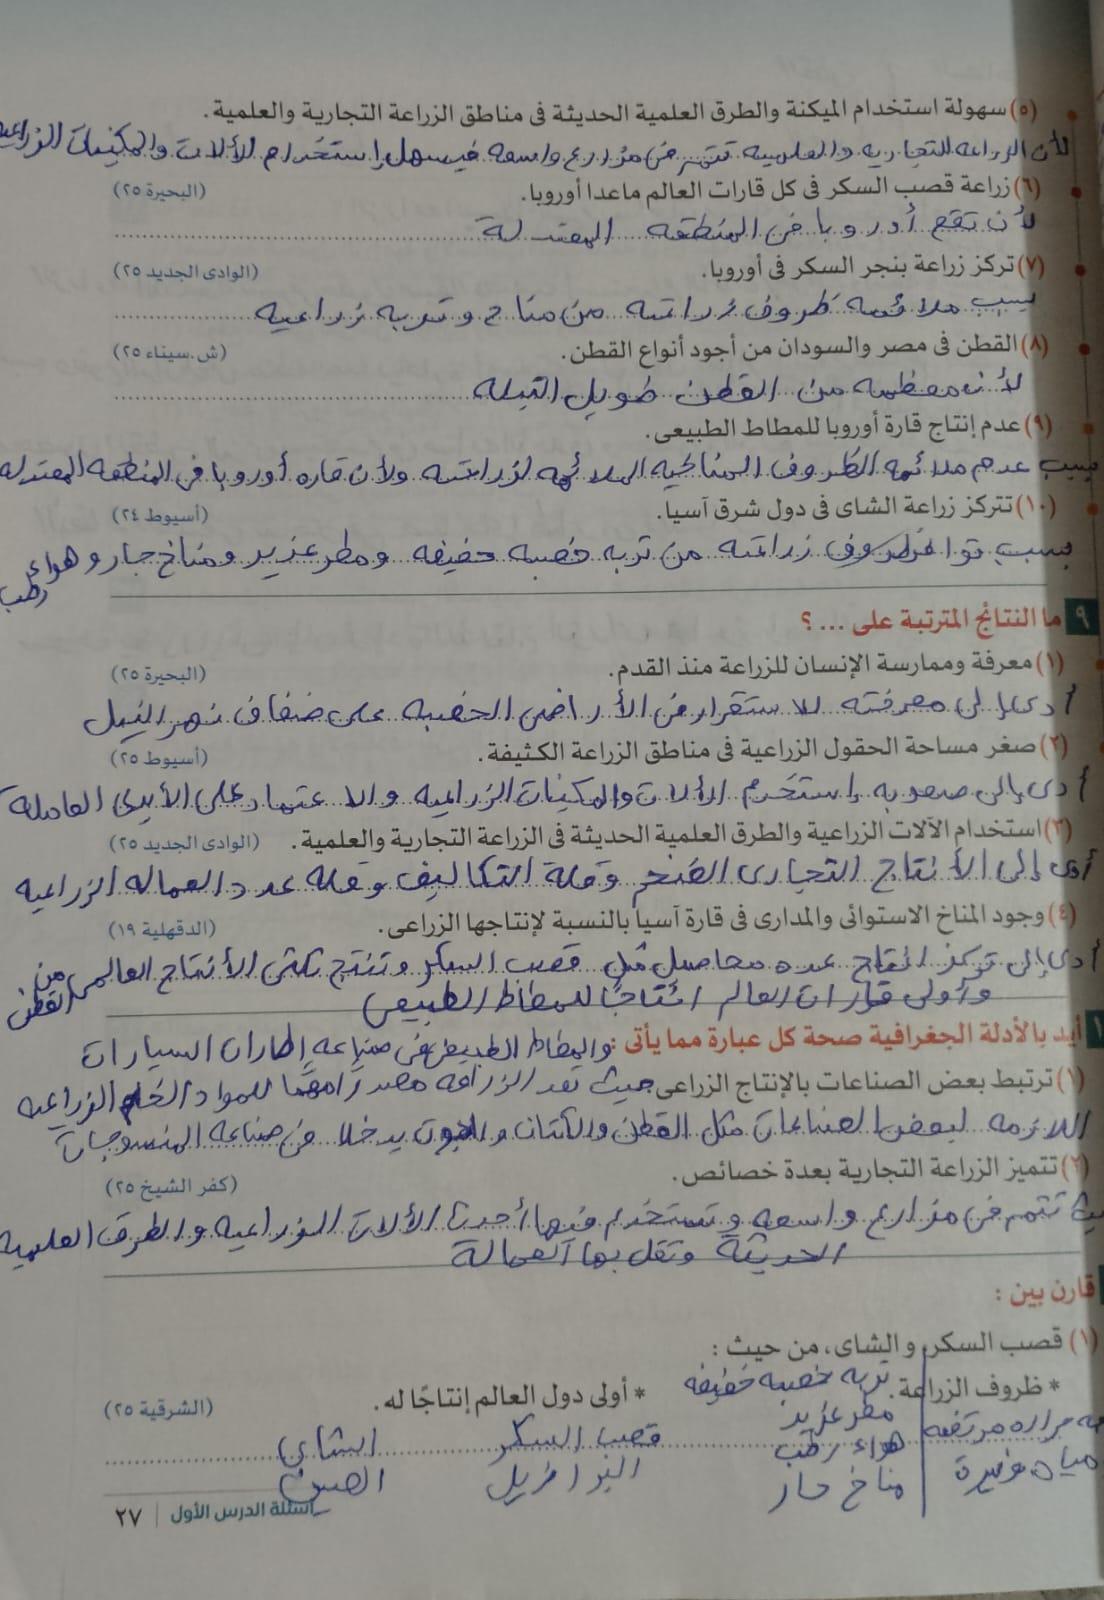 (٥) سهولة استخدام الميكنة والطرق العلمية الحديثة فى مناطق الزراعة التجارية والعلمية.
لأن الزراعه التجاريه والعلميه تتم فى مزارع واسعه فيسهل إستخدام الألات والمكينات الزراعيه
(٦) زراعة قصب السكر فى كل قارات العالم ماعدا أوروبا. (البحيرة ٢٥)
لأن تقع أوروبا فى المنطقه المعتدلة
(٧) تركز زراعة بنجر السكر فى أوروبا. (الوادى الجديد ٢٥)
بسبب ملائمه ظروف زراعته من مناخ وتربه زراعيه
(٨) القطن فى مصر والسودان من أجود أنواع القطن. (ش.سيناء ٢٥)
لأن معظمه من القطن طويل التيله
(٩) عدم إنتاج قارة أوروبا للمطاط الطبيعى.
بسبب عدم ملائمه الظروف المناخيه الملائمه لزراعته ولأن قاره أوروبا فى المنطقه المعتدله
(١٠) تتركز زراعة الشاى فى دول شرق آسيا. (أسيوط ٢٤)
بسبب توافر ظروف زراعته من تربه خصبه خفيفه ومطر غزير ومناخ حار وهواء
رطب
٩ ما النتائج المترتبة على ... ؟
(١) معرفة وممارسة الإنسان للزراعة منذ القدم. (البحيرة ٢٥)
أدى إلى معرفته للاستقرار فى الأراضى الخصبه على ضفاف نهر النيل
(٢) صغر مساحة الحقول الزراعية فى مناطق الزراعة الكثيفة. (أسيوط ٢٥)
أدى إلى صعوبه إستخدم الألات والمكينات الزراعيه والاعتماد على الأيدى العاملة
(٣) استخدام الآلات الزراعية والطرق العلمية الحديثة فى الزراعة التجارية والعلمية. (الوادى الجديد ٢٥)
أدى إلى الأنتاج التجارى الضخم وقلة التكاليف وقله عدد العماله الزراعيه
(٤) وجود المناخ الاستوائى والمدارى فى قارة آسيا بالنسبة لإنتاجها الزراعى. (الدقهلية ١٩)
أدى إلى تركز انتاج عده محاصيل مثل قصب السكر وتنتج ثلثى الأنتاج العالمى من
القطن
وأولى قارات العالم انتاجًا للمطاط الطبيعى
أيد بالأدلة الجغرافية صحة كل عبارة مما يأتى : والمطاط الطبيعى فى صناعه إطارات السيارات
(١) ترتبط بعض الصناعات بالإنتاج الزراعى حيث تعد الزراعه مصدرًا مهمًا للمواد الخام الزراعيه
اللازمه لبعض الصناعات مثل القطن والكتان يدخلا فى صناعه المنسوجات
(٢) تتميز الزراعة التجارية بعدة خصائص. (كفر الشيخ ٢٥)
تتم فى مزارع واسعه وتستخدم فيها أحدث الألات الزراعيه والطرق العلميه
الحديثة وتقل بها العمالة
قارن بين :
(١) قصب السكر والشاى، من حيث :
* ظروف الزراعة. تربه خصبه خفيفه * أولى دول العالم إنتاجًا له. (الشرقية ٢٥)
حراره مرتفعه مطر غزير
هواء رطب قصب السكر الشاى
مياه وفيرة مناخ حار البرازيل الصين
أسئلة الدرس الأول | ٢٧